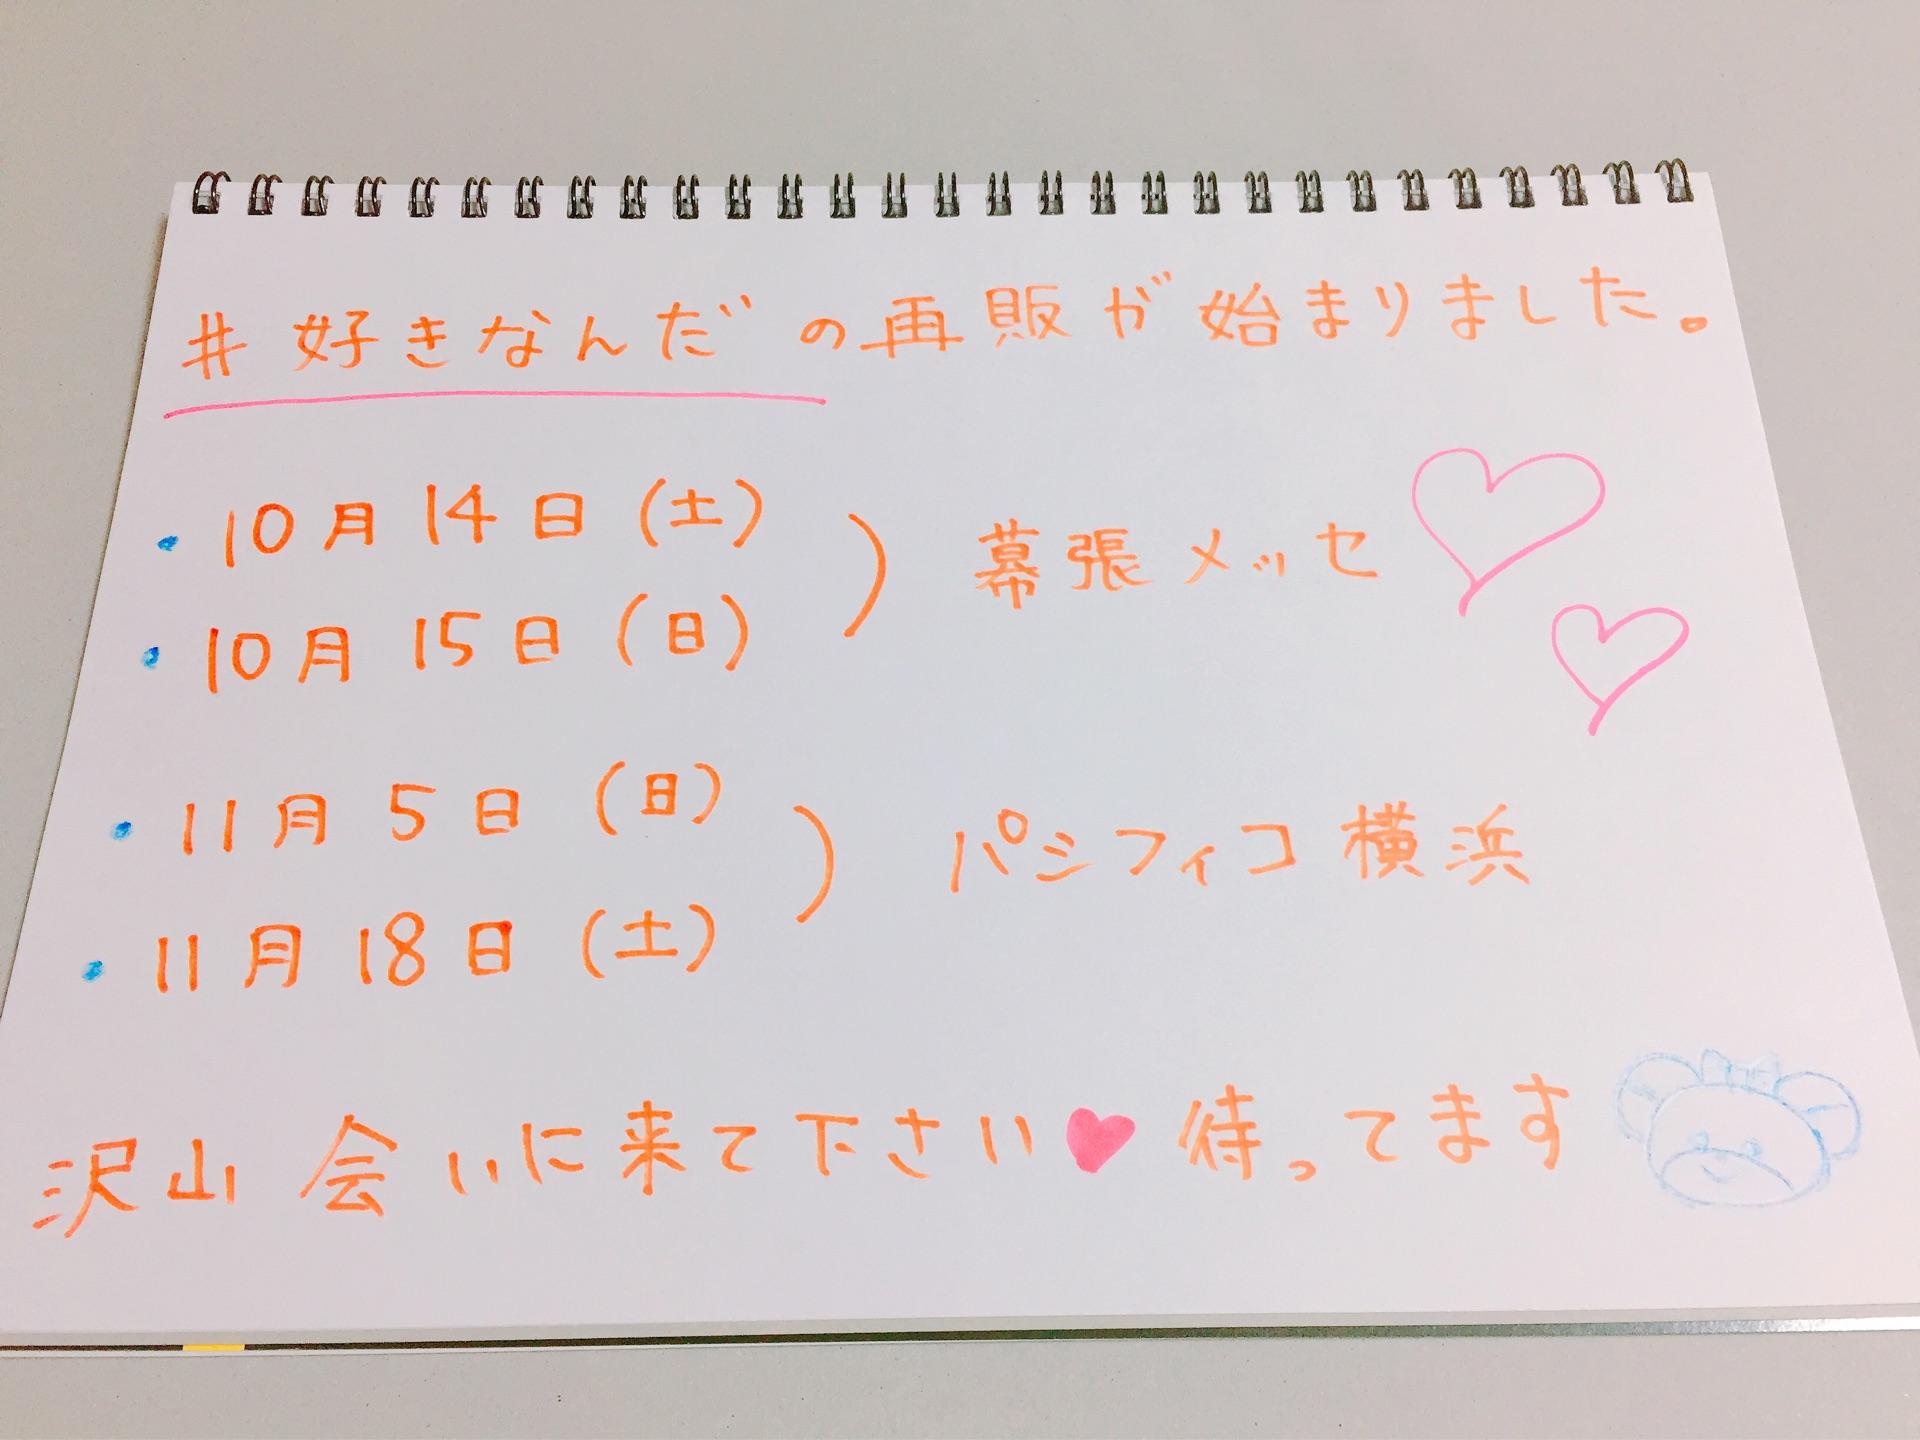 #好きなんだの再販が始まりました。
・10月14日(土)
幕張メッセ
・10月15日(日)
・11月5日(日)
パシフィコ横浜
・11月18日(土)
沢山会いに来て下さい♥待ってます